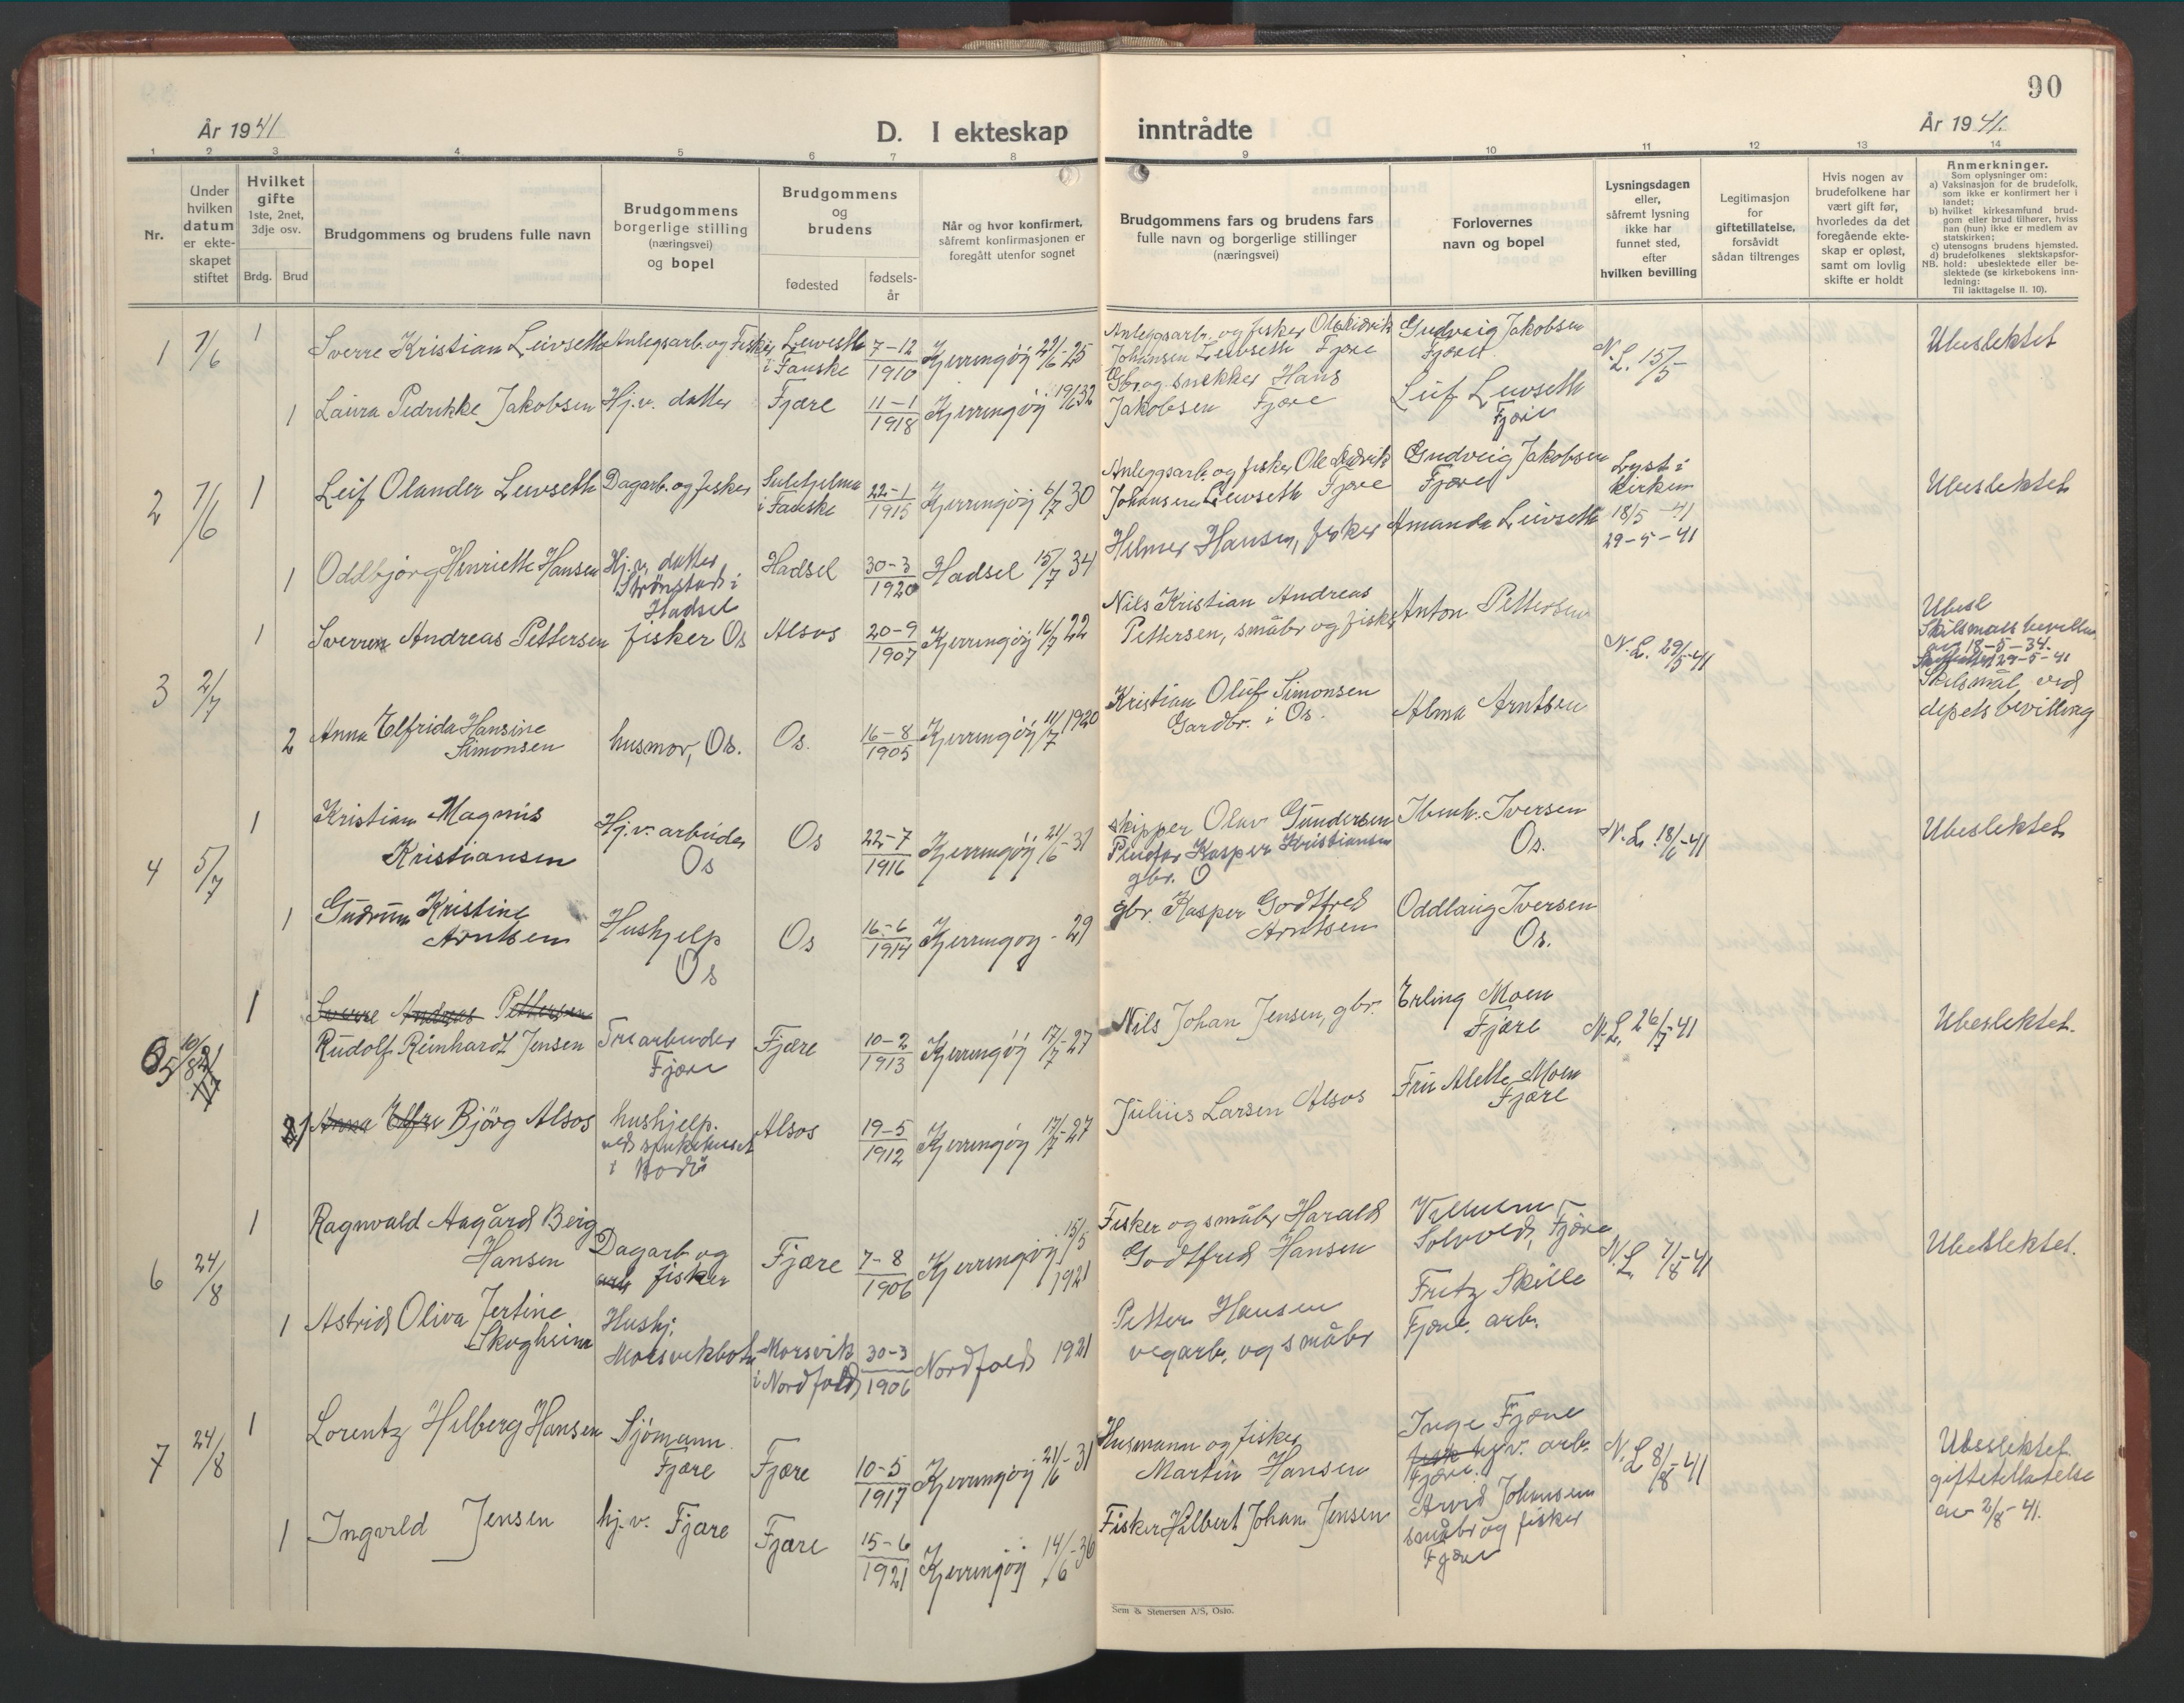 90
År 1941
D. I ekteskap inntrådte
År 1941.
1 2 3 4 5 6 7 8 9 10 11 12 13 14
Nr.
Under
hvilken
datum
er ekte-
skapet
stiftet
Hvilket
gifte
1ste, 2net,
3dje osv.
Brdg. Brud
Brudgommens og brudens fulle navn
Brudgommens
borgerlige stilling
(næringsvei)
og bopel
Brudgommens
og
brudens
fødested
fødsels-
år
Når og hvor konfirmert,
såfremt konfirmasjonen er
foregått utenfor sognet
Brudgommens fars og brudens fars
fulle navn og borgerlige stillinger
(næringsvei)
Forlovernes
navn og bopel
Lysningsdagen
eller,
såfremt lysning
ikke har
funnet sted,
efter
hvilken bevilling
Legitimasjon
for
giftetillatelse,
forsåvidt
sådan tiltrenges
Hvis nogen av
brudefolkene har
vært gift før,
hvorledes da det
foregående ekte-
skap er opløst,
samt om lovlig
skifte er holdt
Anmerkninger.
Som oplysninger om:
a) Vaksinasjon for de brudefolk,
som ikke er konfirmert her i
landet;
b) hvilket kirkesamfund brud-
gom eller brud tilhører, hviss
han (hun) ikke er medlem av
statskirken;
c) utensogns brudens hjemsted.
d) brudefolkenes slektskapsfor-
hold: ubeslektede eller be-
slektede (se kirkebokens inn-
ledning:
NB.
Til iakttagelse II. 10).
1 7/6 1 Sverre Kristian Leivseth Anlegsarb. og Fisker Leivseth i Fauske 7-12 1910 Kjerringøy 25
Anleggsarb. og fisker Ole Didrik
Johansen Leivseth Fjære
Gudveig Jakobsen
Fjære
N. L. 15/5
Ubeslektet
1 Laura Pedrikke Jakobsen Hj.v. datter Fjære 11-1 1918 Kjerringøy 19/6 32
Gbr. og snekker Hans
Jakobsen Fjære
Leif Leivseth
Fjære
2 7/6 1 Leif Olander Leivseth Dagarb. og fisker Sulitjelma i Fauske 22-1 1915 Kjerringøy 6/7 30
Anleggsarb. og fisker Ole Didrik
Johansen Leivseth Fjære
Gudveig Jakobsen
Fjære
Lyst i
kirken
18/5 -41
29-5-41
Ubeslektet
1 Oddbjørg Henriette Hansen Hj.v. datter
Strønstad i
Hadsel
Hadsel 30-3 1920 Hadsel 15/7 34
Hilmer Hansen, fisker
Amanda Leivseth
3 2/7 1 Sverre Andreas Pettersen fisker Os Alsos 20-9 1907 Kjerringøy 16/7 22
Nils Kristian Andreas
Pettersen, småbr og fisker
Anton Pettersen
N. L. 29/5-41
Ubesl
av 18-5-34.
29-5-41
Skilsmål ved
depets bevilling
2 Anna Elfrida Hansine
Simonsen
husmor, Os. Os. 16-8 1905 Kjerringøy 11/7 1920
Kristian Oluf Simonsen
Gardbr. i Os.
Alma Arntsen
4 5/7 1 Kristian Magnus
Kristiansen
Hj.v. arbeider
Os
Os 22-7 1916 Kjerringøy 21/6-31
skipper Olav Gundersen
Kasper Kristiansen
gbr. O
Iversen
Os.
N. L. 18/6-41
Ubeslektet
1 Gudrun Kristine
Arntsen
Hushjelp
Os
Os 16-6 1914 Kjerringøy - 29
gbr. Kasper Godtfred
Arntsen
Oddlaug Iversen
Os.
5 10/8 1 Sverre Andreas Pettersen
Rudolf Reinhardt Jensen Trearbeider
Fjære
Fjære 10-2 1913 Kjerringøy 17/7-27
Nils Johan Jensen, gbr.
Erling Moen
Fjære
N. L. 26/7-41
Ubeslektet.
1 Anna Elfri Bjørg Alsos hushjelp.
ved sjukehuset
i Bodø
Alsos 19-5 1912 Kjerringøy 17/7-27
Julius Larsen Alsos
Fru Alette Moen
Fjære
6 24/8 1 Ragnvald Aagård Berg
Hansen
Dagarb. og
arb fisker
Fjære 7-8 1906 Kjerringøy 15/5 1921
Fisker og småbr Harald
Godtfred Hansen
Vilhelm
Solvold, Fjære
N. L. 7/8-41
Ubeslektet.
1 Astrid Oliva Jertine
Skogheim
Hushj.
Morsvikbotn
Morsvik
i Nordfold
30-3 1906 Nordfold 1921
Petter Hansen
vegarb. og småbr
Fritz Skille
Fjære. arb.
7 24/8 1 Lorentz Hilberg Hansen Sjømann.
Fjære
Fjære 10-5 1917 Kjerringøy 21/6-31
Husmann og fisker
Martin Hansen
Inge Fjære
hj.v. arb.
Fjære.
N. L 8/8-41
Ubeslektet.
giftetillatelse
av 2/8-41.
1 Ingvild Jensen hj.v. Fjære Fjære 15-6 1921 Kjerringøy 14/6-36
Fisker Hilbert Johan Jensen
Arvid Johansen
småbr og fisker
Fjære
Sem & Stenersen A/S, Oslo.